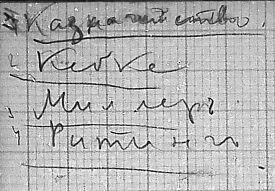 Казначейство.
2 Кейке
3 Миллеръ.
4 Ритингъ